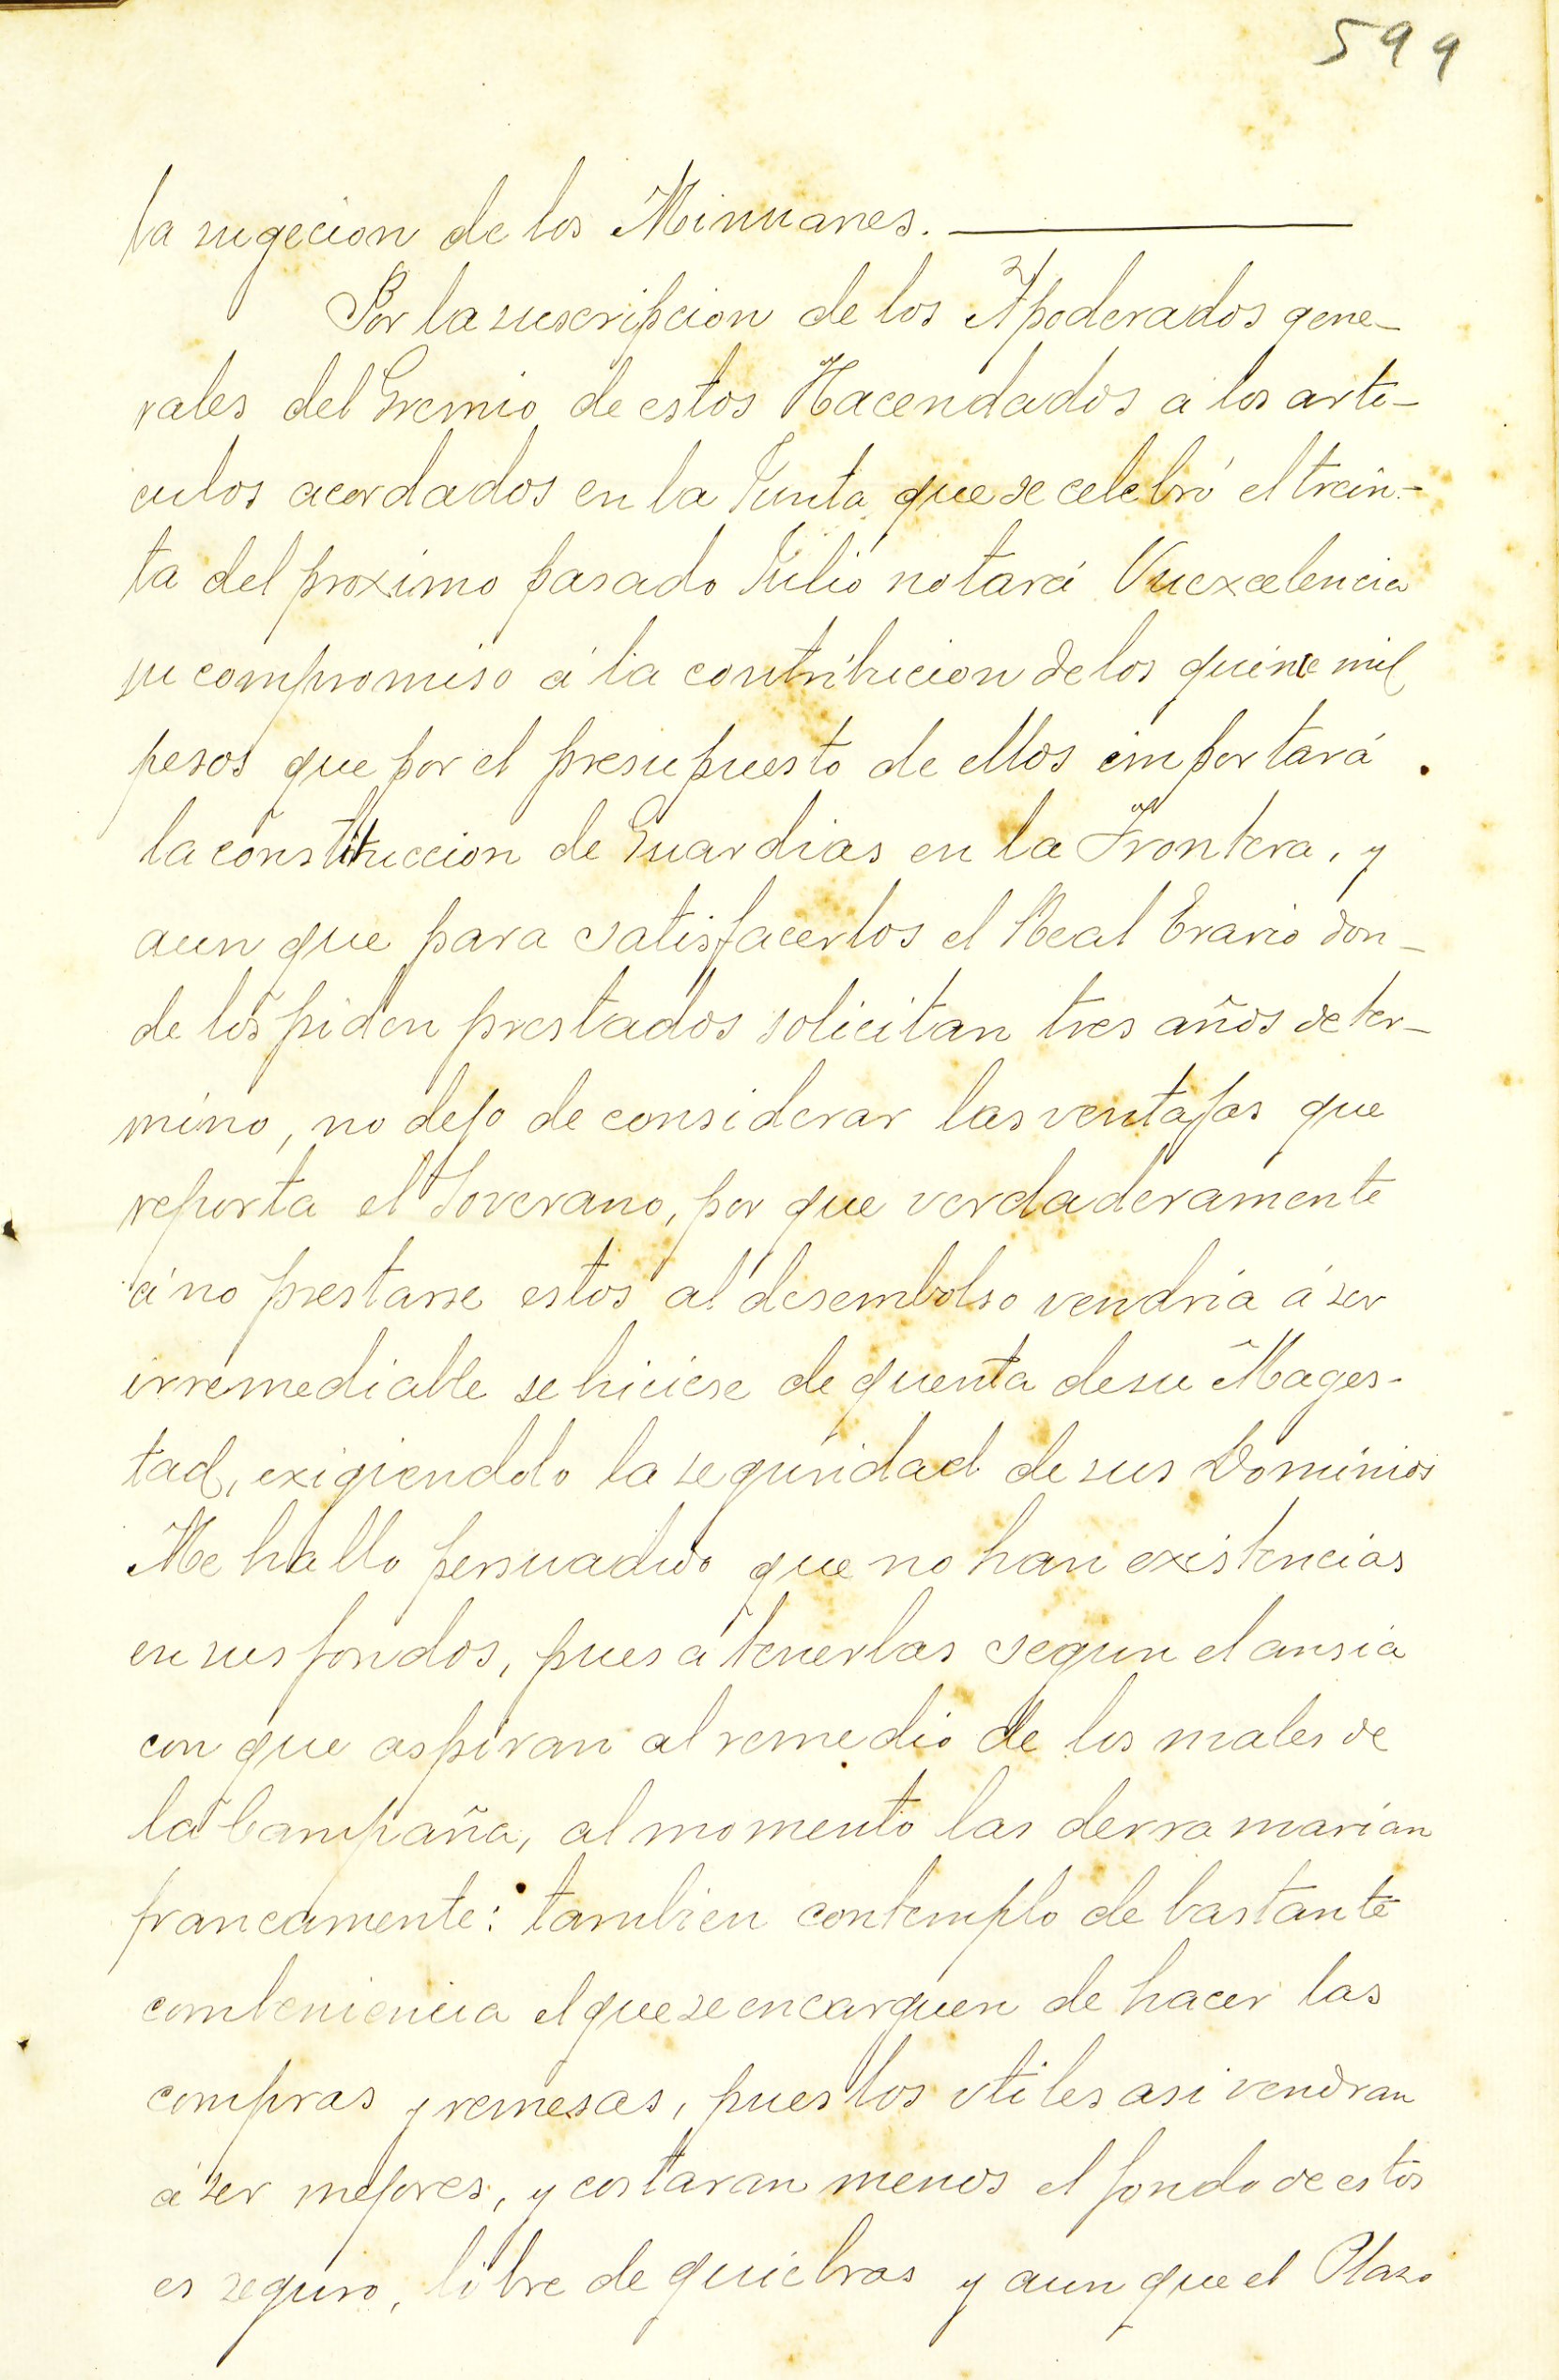 599
la sugecion de los Minuanes.
Por la suscripcion de los Apoderados gene-
rales del Gremio de estos Hacendados a los arti-
culos acordados en la Junta que se celebró el trein-
ta del proximo pasado Julio notará Vuexcelencia
su compromiso á la contribucion de los quince mil
pesos que por el presupuesto de ellos importará
la construccion de Guardias en la Frontera, y
aun que para satisfacerlos el Real Erario don-
de los piden prestados solicitan tres años de ter-
mino, no dejo de considerar las ventajas que
reporta el Soverano, por que verdaderamente
á no prestarse estos al desembolso vendria á ser
irremediable se hiciese de quenta de su Mages-
tad, exigiendolo la seguridad de sus Dominios
Me hallo persuadido que no han existencias
en sus fondos, pues a tenerlas segun el ansia
con que aspiran al remedio de los males de
la Campaña, al momento las derramarian
francamente: tambien contemplo de bastante
combeniencia el que se encarguen de hacer las
compras y remesas, pues los utiles asi vendran
á ser mejores, y costaran menos el fondo de estos
es seguro, libre de quiebras y aun que el Plazo